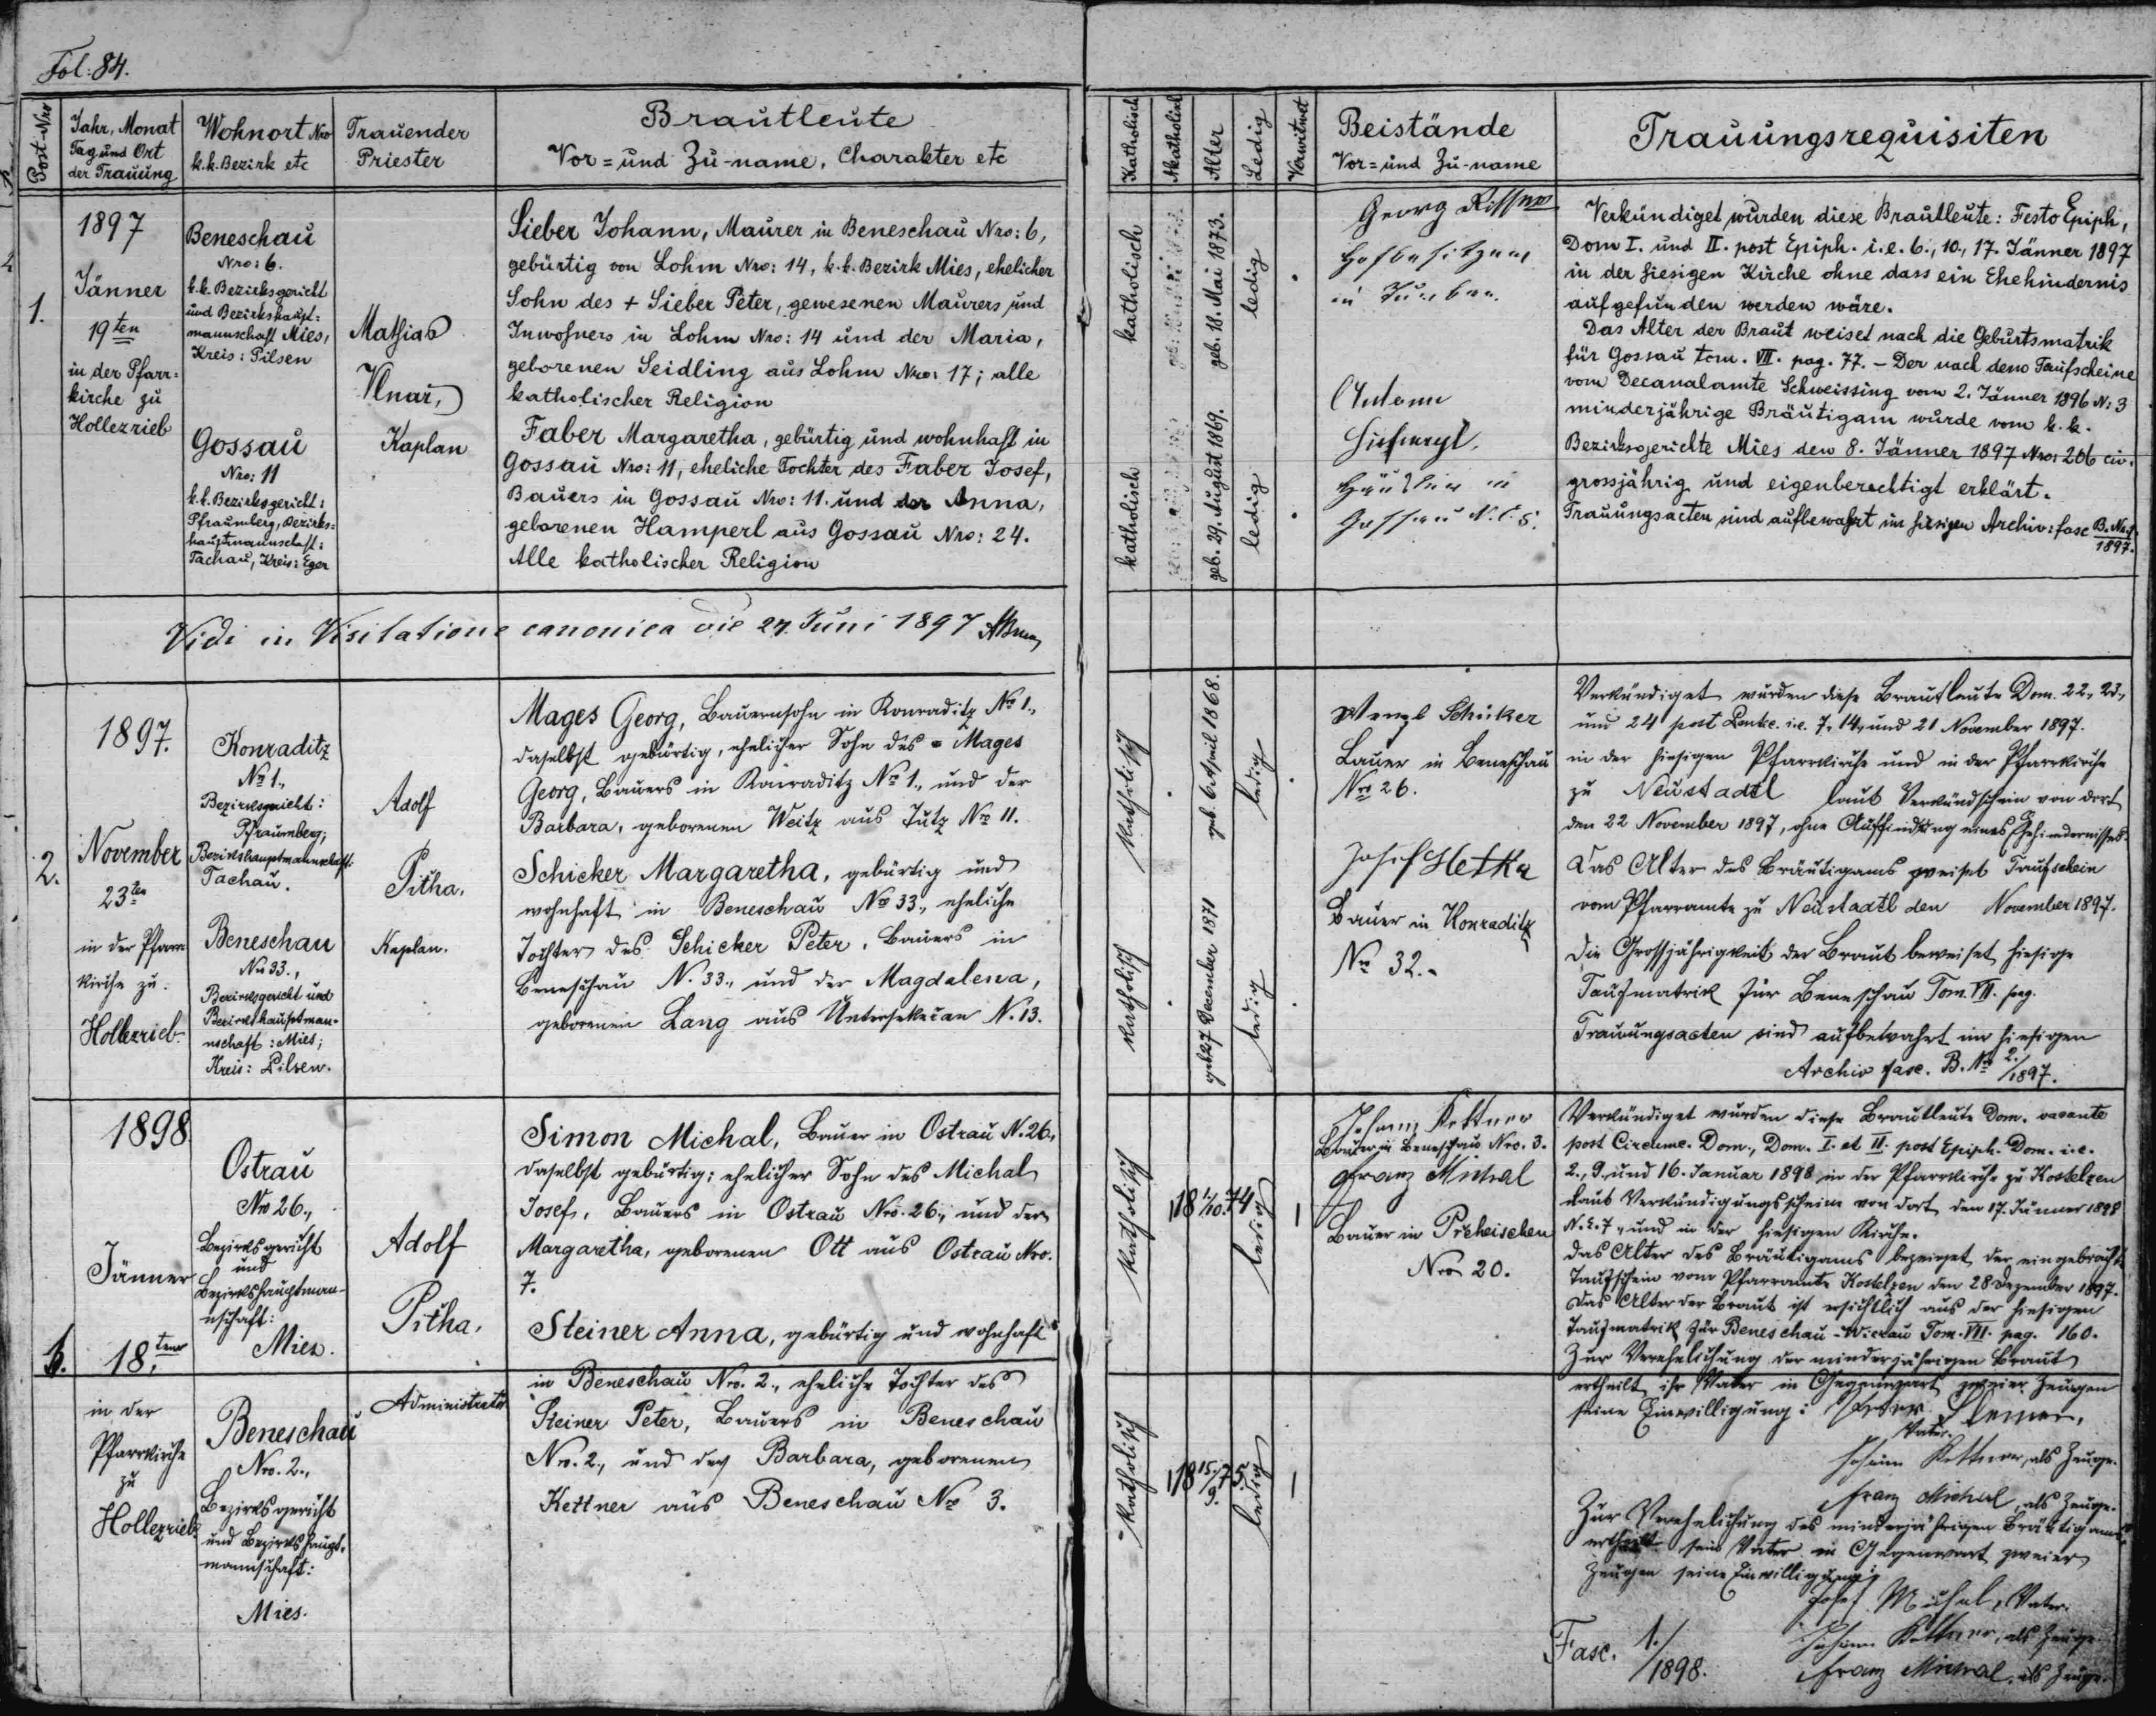 Fol: 84.
Post-Nro
Jahr, Monat
Tag und Ort
der Trauung
Wohnort Nro
k.k. Bezirk etc
Trauender
Priester
Brautleute
Vor= und Zu-name, Charakter etc
Katholisch
Akatholisch
Alter
Ledig
Verwitwet
Beistände
Vor= und Zu-name
Trauungsrequisiten
1.
1897
Jänner
19ten
in der Pfarr=
kirche zu
Hollezrieb
Beneschau
Nro: 6.
k.k. Bezirksgericht
und Bezirkshaupt=
mannschaft Mies,
Kreis: Pilsen
Gossau
Nro: 11
k.k. Bezirksgericht:
Pfraumberg, Bezirks=
hauptmannschaft:
Tachau, Kreis: Eger
Mathias
Kaplan
Sieber Johann, Maurer in Beneschau Nro: 6,
gebürtig von Lohm Nro: 14, k.k. Bezirk Mies, ehelicher
Sohn des + Sieber Peter, gewesenen Maurers und
Inwohners in Lohm Nro: 14 und der Maria,
geborenen Seidling aus Lohm Nro: 17; alle
katholischer Religion
Faber Margaretha, gebürtig und wohnhaft in
Gossau Nro: 11, eheliche Tochter des Faber Josef,
Bauers in Gossau Nro: 11. und der Anna,
geborenen Hamperl aus Gossau Nro: 24.
Alle katholischer Religion
katholisch
geb. 18. Mai 1873.
ledig
katholisch
geb. 29. August 1869.
ledig
Georg
Hofbesitzer
in
Gossau N.C. 5.
Verkündiget wurden diese Brautleute: Festo Epiph,
Dom I. und II. post Epiph. i.e. 6., 10., 17. Jänner 1897
in der hiesigen Kirche ohne dass ein Ehehindernis
aufgefunden werden wäre.
Das Alter der Braut weiset nach die Geburtsmatrik
für Gossau tom. VII. pag. 77. – Der nach dem Taufscheine
vom Decanalamte Schweissing vom 2. Jänner 1896 N: 3
minderjährige Bräutigam wurde vom k.k.
Bezirksgerichte Mies den 8. Jänner 1897 Nro: 206 civ.
grossjährig und eigenberechtigt erklärt.
Trauungsacten sind aufbewahrt im hiesigen Archiv: fasc B. No 1.
1897.
Vidi in Visitatione canonica die 27. Juni 1897
2.
1897.
November
23ten
in der Pfarr
kirche zu
Hollezrieb
Konraditz
No 1.,
Bezirksgericht:
Pfraumberg;
Bezirkshauptmannschaft:
Tachau.
Beneschau
No 33.,
Bezirksgericht und
Bezirkshauptman-
nschaft: Mies;
Kreis: Pilsen.
Adolf
Pitha.
Kaplan.
Mages Georg, Bauernsohn in Konraditz No 1.,
daselbst gebürtig, ehelicher Sohn des Mages
Georg, Bauers in Konraditz No 1., und der
Barbara, geborenen Weitz aus Tutz No 11.
Schicker Margaretha, gebürtig und
wohnhaft in Beneschau No 33., eheliche
Tochter des Schicker Peter, Bauers in
Beneschau N. 33., und der Magdalena,
geborenen Lang aus N. 13.
Katholisch
geb. 6 April 1868.
ledig
Katholisch
geb. 27 December 1871
ledig
Wenzl Schicker
Bauer in Beneschau
Nro 26.
Josef Hetka
Bauer in Konraditz
No 32.-
Verkündiget wurden diese Brautleute Dom. 22., 23.,
und 24 post Pentec. i.e. 7., 14., und 21 November 1897.
in der hiesigen Pfarrkirche und in der Pfarrkirche
zu Neustadtl laut Verkündschein von dort
den 22 November 1897, ohne Auffindung eines Ehehindernisses.
Das Alter des Bräutigams weiset Taufschein
vom Pfarramte zu Neustadtl den November 1897.
Die Grossjährigkeit der Braut beweiset hiesige
Taufmatrik für Beneschau Tom. VII. pag.
Trauungsacten sind aufbewahrt im hiesigen
Archiv fasc. B. No 2./1897.
1.
1898
Jänner
18.ten
in der
Pfarrkirche
zu
Hollezrieb
Ostrau
No 26.,
Bezirksgericht
und
Bezirkshauptman-
nschaft:
Mies.
Beneschau
Nro. 2.,
Bezirksgericht
und Bezirkshaupt-
mannschaft:
Mies.
Adolf
Pitha.
Administrator
Simon Michal, Bauer in Ostrau N. 26.,
daselbst gebürtig; ehelicher Sohn des Michal
Josef, Bauers in Ostrau Nro. 26., und der
Margaretha, geborenen Ott aus Ostrau Nro.
7.
Steiner Anna, gebürtig und wohnhaft
in Beneschau Nro. 2., eheliche Tochter des
Steiner Peter, Bauers in Beneschau
Nro. 2., und der Barbara, geborenen
Kettner aus Beneschau No 3.
Katholisch
18 1/10. 74
ledig
Katholisch
18 15./9. 75.
ledig
Johann Kettner
Bauer in Beneschau Nro. 3.
Franz Michal
Bauer in Preheischen
Nro 20.
Verkündiget wurden diese Brautleute Dom. vacante
post Circumc. Dom., Dom. I. et II. post Epiph. Dom. i.e.
2., 9., und 16. Januar 1898 in der Pfarrkirche zu Kostelzen
laut Verkündigungsschein von dort den 17. Jänner 1898
N. E. 7., und in der hiesigen Kirche.
Das Alter des Bräutigams bezeiget der eingebrachte
Taufschein vom Pfarramte Kostelzen den 28 Dezember 1897.
Das Alter der Braut ist ersichtlich aus der hiesigen
Taufmatrik für Beneschau-Wierau Tom. VII. pag. 160.
Zur Verehelichung der minderjährigen Braut
ertheilt ihr Vater in Gegenwart zweier Zeugen
seine Einwilligung: Peter Steiner,
Vater.
Johann Kettner, als Zeuge.
Franz Michal, als Zeuge.
Zur Verehelichung des minderjährigen Bräutigams
ertheilt sein Vater in Gegenwart zweier
Zeugen seine Einwilligung:
Josef Michal, Vater.
Johann Kettner, als Zeuge.
Franz Michal, als Zeuge.
Fasc. 1./1898.